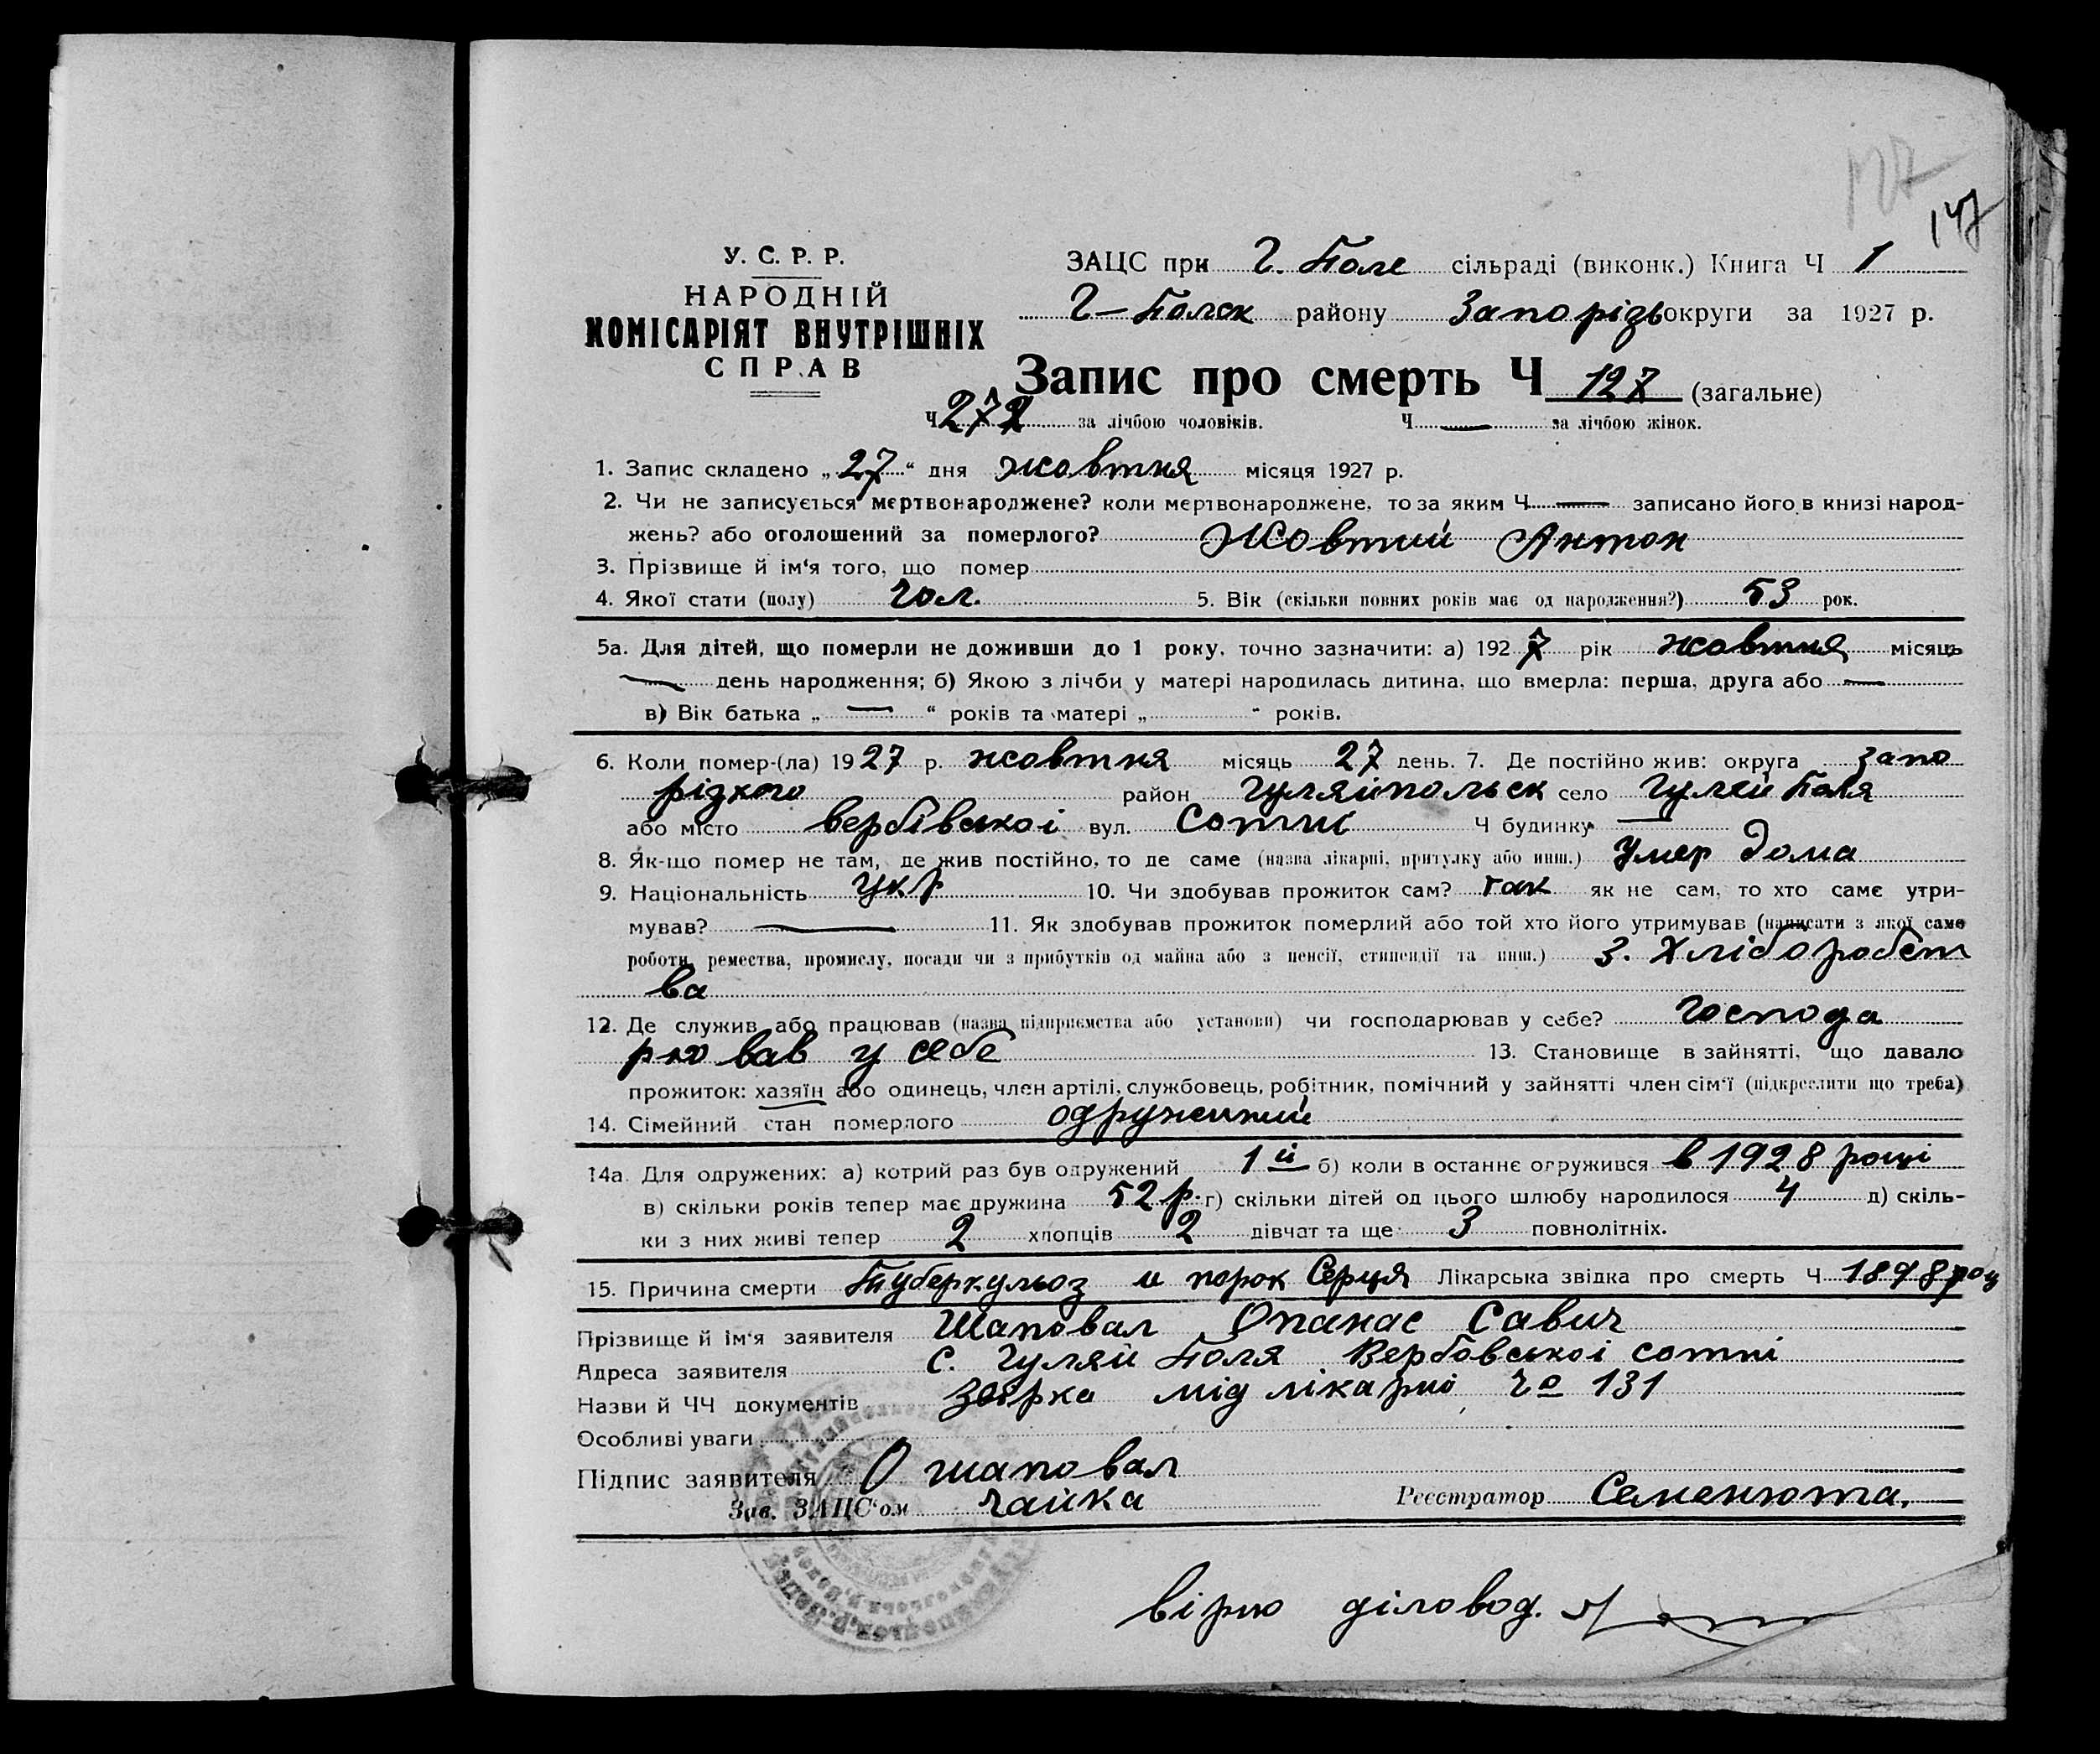 127
147
У. С. Р. Р.
НАРОДНІЙ
КОМІСАРІЯТ ВНУТРІШНІХ
СПРАВ
ЗАЦС при Г. Поле сільраді (виконк.) Книга Ч 1
Г-Полск району Запорізь округи за 1927 р.
Запис про смерть Ч 127 (загальне)
Ч 272 за лічбою чоловіків. Ч — за лічбою жінок.
1. Запис складено „27“ дня жовтня місяця 1927 р.
2. Чи не записується мертвонароджене? коли мертвонароджене, то за яким Ч — записано його в книзі народ-
жень? або оголошений за померлого? Жовтий Антон
3. Прізвище й ім'я того, що помер
4. Якої стати (полу) чол. 5. Вік (скільки повних років має од народження?) 53 рок.
5а. Для дітей, що померли не доживши до 1 року, точно зазначити: а) 1927 рік жовтня місяць
— день народження; б) Якою з лічби у матері народилась дитина, що вмерла: перша, друга або —
в) Вік батька „—“ років та матері „ “ років.
6. Коли помер-(ла) 1927 р. жовтня місяць 27 день. 7. Де постійно жив: округа запо
різкого район Гуляйпольск село Гуляй Поля
або місто вербівської вул. сотні Ч будинку —
8. Як-що помер не там, де жив постійно, то де саме (назва лікарні, притулку або инш.) умер дома
9. Національність укр 10. Чи здобував прожиток сам? так як не сам, то хто саме утри-
мував? — 11. Як здобував прожиток померлий або той хто його утримував (написати з якої само
роботи, ремества, промислу, посади чи з прибутків од майна або з пенсії, стипендії та инш.) З. Хліборобст
ва
12. Де служив або працював (назва підприємства або установи) чи господарював у себе? господа
рював у себе 13. Становище в зайнятті, що давало
прожиток: хазяїн або одинець, член артілі, службовець, робітник, помічний у зайнятті член сім'ї (підкреслити що треба)
14. Сімейний стан померлого одружений
14а. Для одружених: а) котрий раз був одружений 1й б) коли в останнє одружився в 1928 році
в) скільки років тепер має дружина 52 р. г) скільки дітей од цього шлюбу народилося 4 д) скіль-
ки з них живі тепер 2 хлопців 2 дівчат та ще 3 повнолітніх.
15. Причина смерти Туберкульоз и порок Серця Лікарська звідка про смерть Ч 1898 роц
Прізвище й ім'я заявителя Шаповал Опанас Савич
Адреса заявителя с. Гуляй Поля Вербовської сотні
Назви й ЧЧ документів звірка мід лікарні Чо 131
Особливі уваги
Підпис заявителя О шаповал
Зав. ЗАЦС'ом Чайка Реєстратор Семенюта.
вірно діловод.